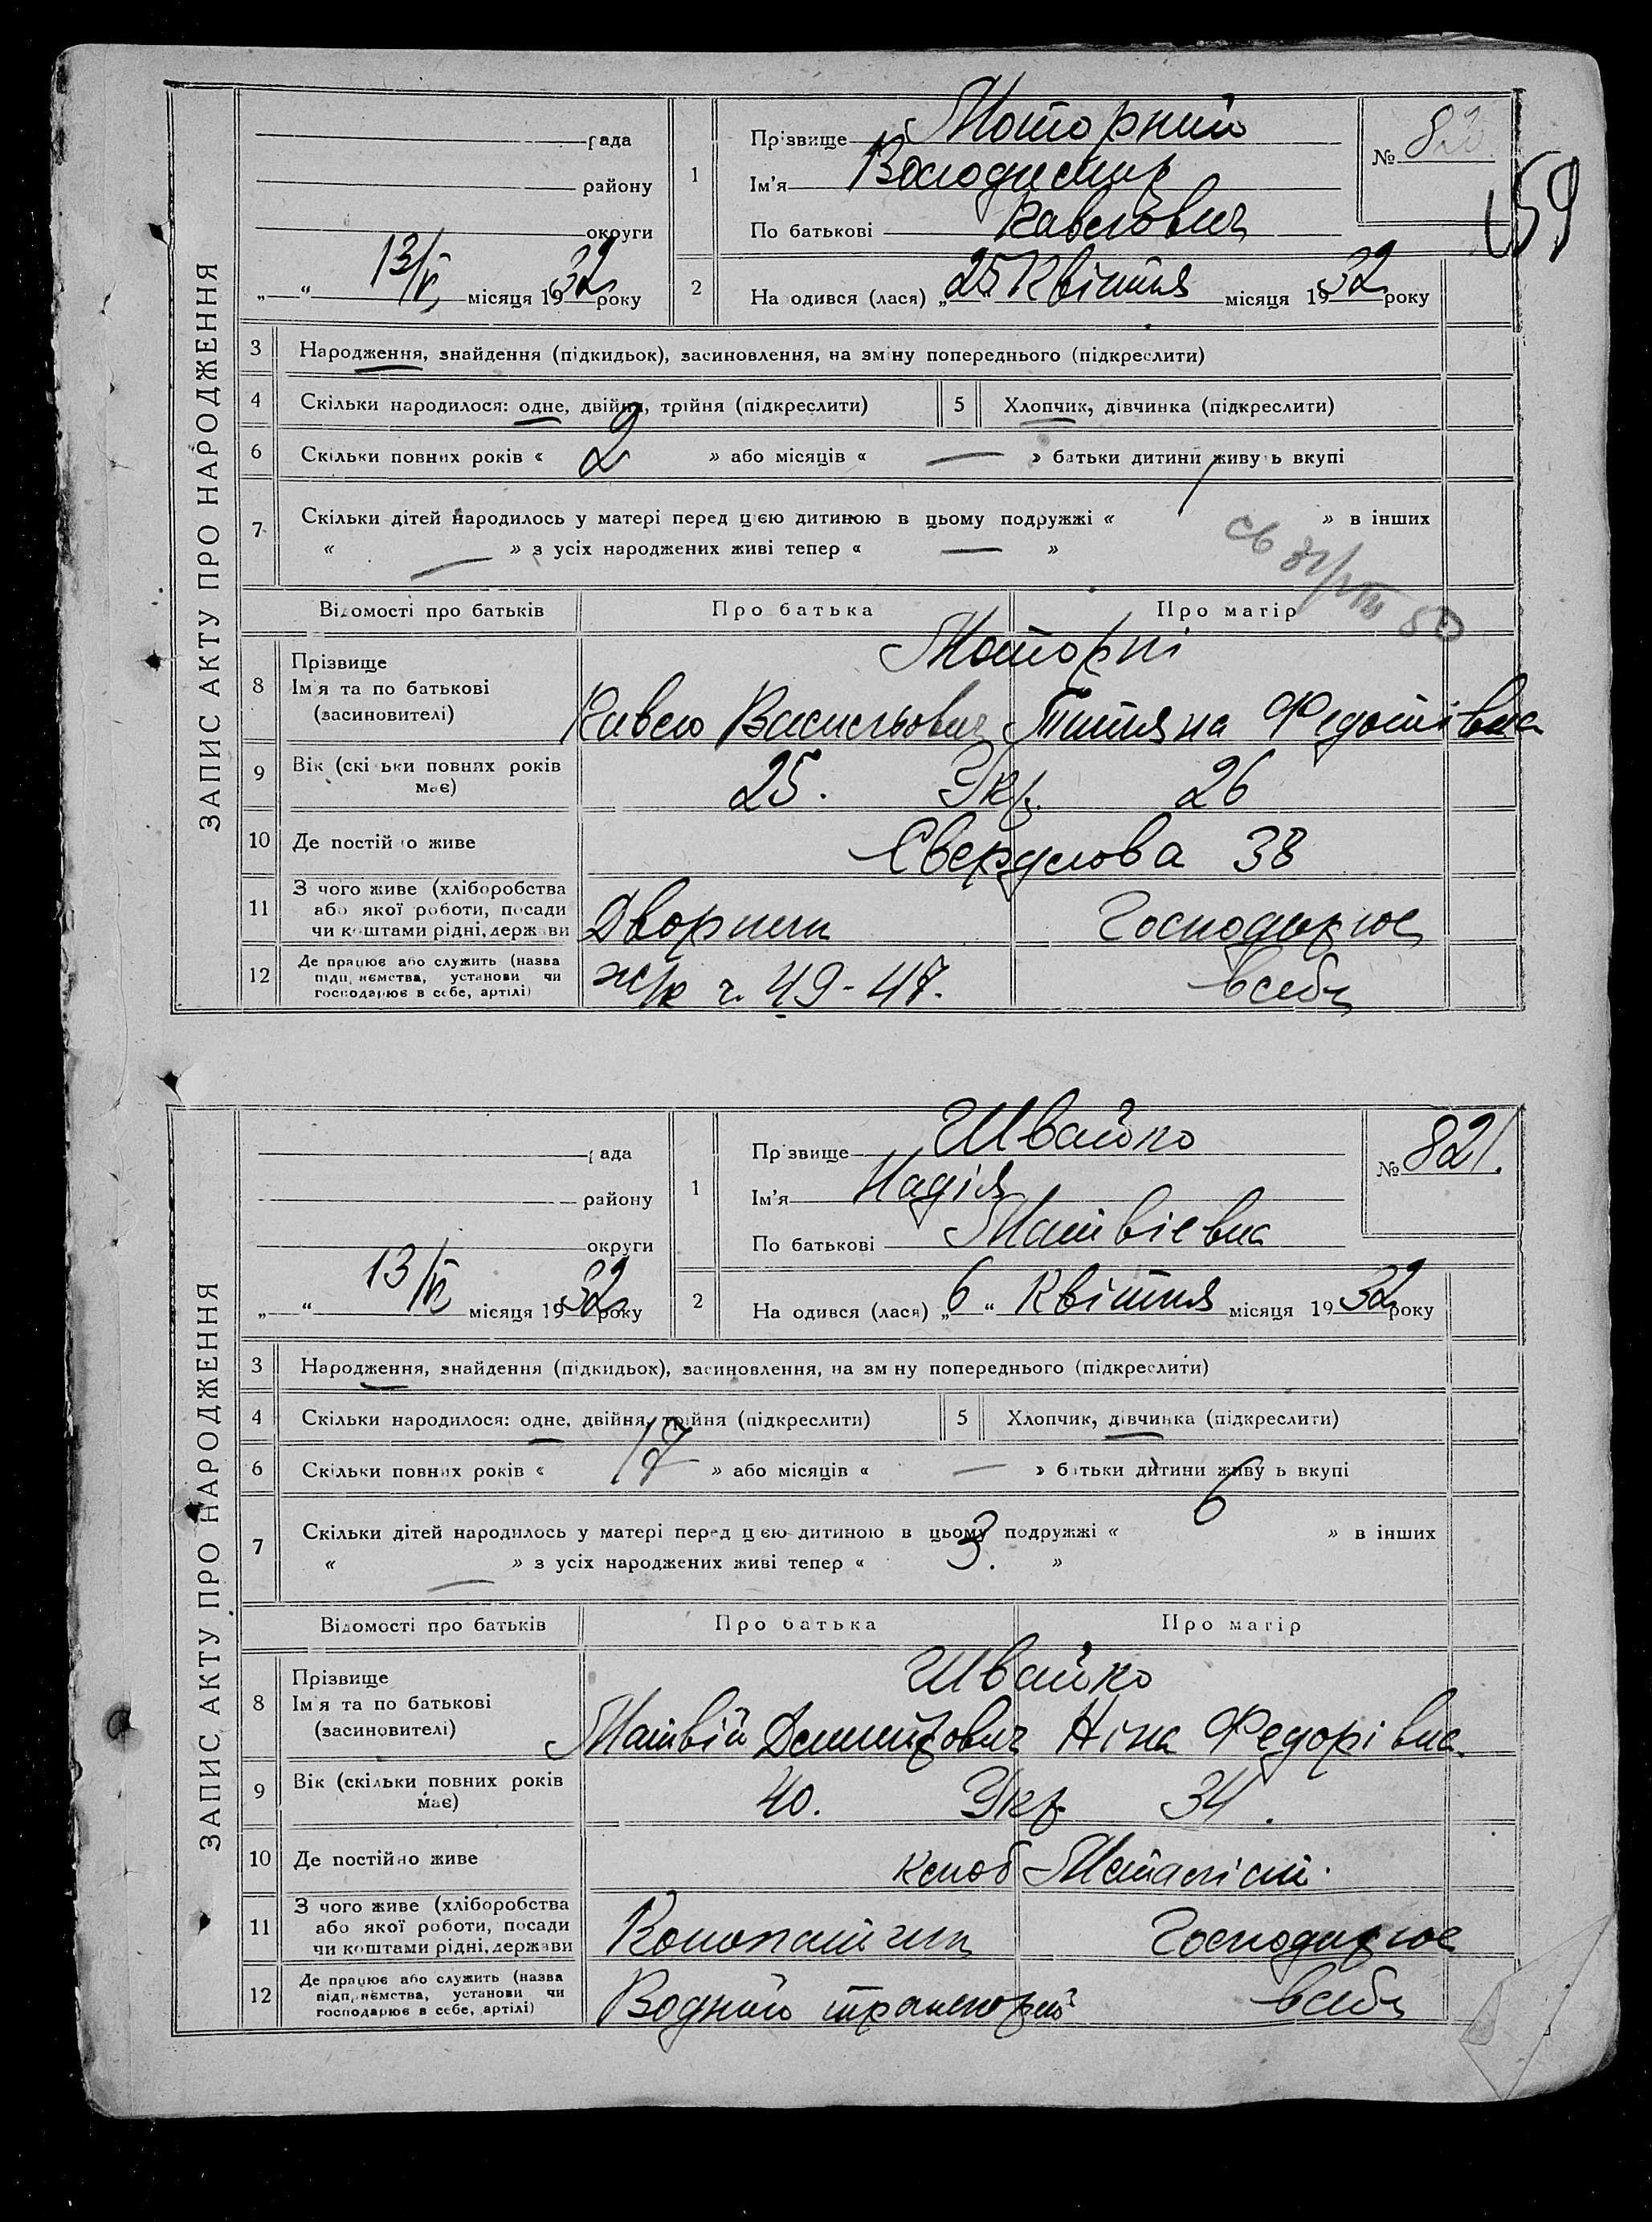 ЗАПИС АКТУ ПРО НАРОДЖЕННЯ
рада
району
округи
„ “ 13/VI місяця 1932 року
1
Прізвище Моторний
Ім'я Володимир
По батькові Павлович
№ 820
159
2
Народився (лася) „25“ Квітня місяця 1932 року
3 Народження, знайдення (підкидьок), засиновлення, на зміну попереднього (підкреслити)
4 Скільки народилося: одне, двійня, трійня (підкреслити)
5 Хлопчик, дівчинка (підкреслити)
6 Скільки повних років « 2 » або місяців « — » батьки дитини живуть вкупі
7 Скільки дітей народилось у матері перед цією дитиною в цьому подружжі « 1 » в інших
« — » з усіх народжених живі тепер « — »
Відомості про батьків Про батька Про матір
8 Прізвище
Ім'я та по батькові
(засиновителі)
Моторні
Павло Васильович Тетяна Федотівна
9 Вік (скільки повних років має)
25. Укр. 26
10 Де постійно живе
Свердлова 38
11 З чого живе (хліборобства
або якої роботи, посади
чи коштами рідні, держави
Дворник Господарює
12 Де працює або служить (назва
підприємства, установи чи
господарює в себе, артілі)
ж/к ч. 49-47. в себе
ЗАПИС АКТУ ПРО НАРОДЖЕННЯ
рада
району
округи
„ “ 13/VI місяця 1932 року
1
Прізвище Швайко
Ім'я Надія
По батькові Матвієвна
№ 821.
2
Народився (лася) „6“ Квітня місяця 1932 року
3 Народження, знайдення (підкидьок), засиновлення, на зміну попереднього (підкреслити)
4 Скільки народилося: одне, двійня, трійня (підкреслити)
5 Хлопчик, дівчинка (підкреслити)
6 Скільки повних років « 17 » або місяців « — » батьки дитини живуть вкупі
7 Скільки дітей народилось у матері перед цією дитиною в цьому подружжі « 6 » в інших
« — » з усіх народжених живі тепер « 3. »
Відомості про батьків Про батька Про матір
8 Прізвище
Ім'я та по батькові
(засиновителі)
Швайко
Матвій Дмитрович Ніна Федорівна
9 Вік (скільки повних років має)
40. Укр. 34.
10 Де постійно живе
клюб Металіст.
11 З чого живе (хліборобства
або якої роботи, посади
чи коштами рідні, держави
Конопатчик Господарює
12 Де працює або служить (назва
підприємства, установи чи
господарює в себе, артілі)
Водний транспорт в себе